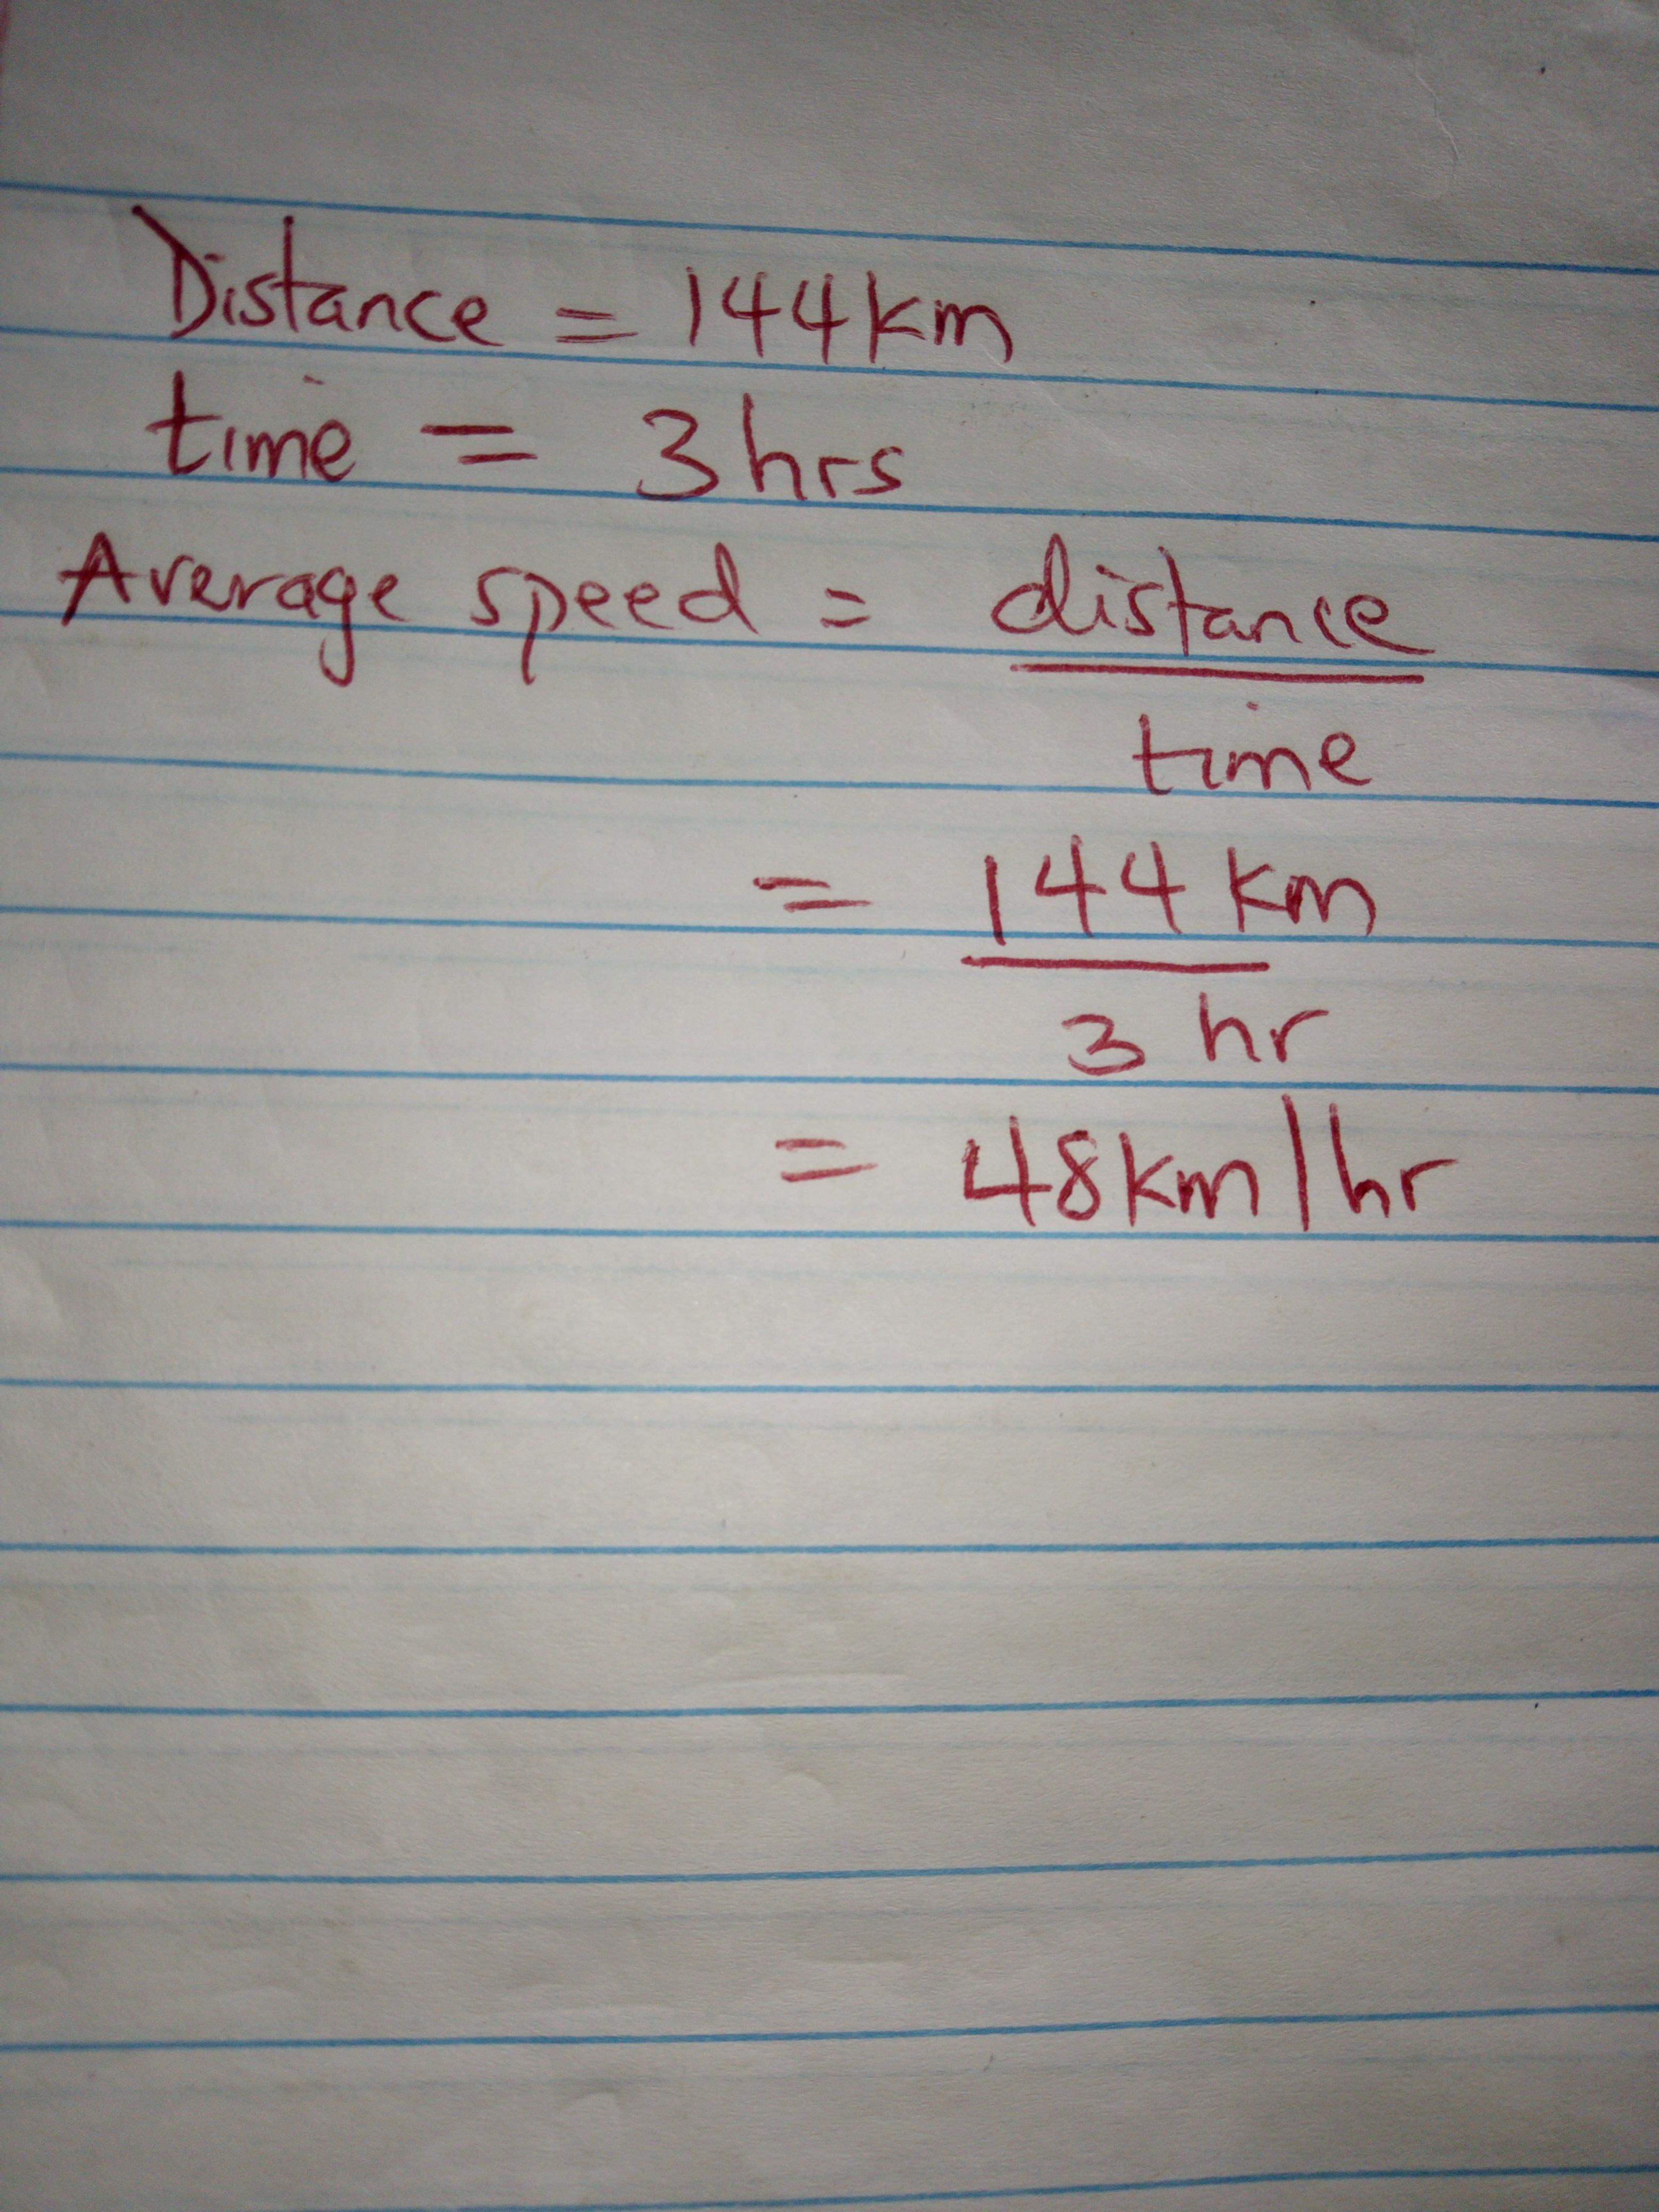 Distance = 144km
time = 3hrs
Average speed = distance
time
= 144 km
3 hr
= 48km/hr